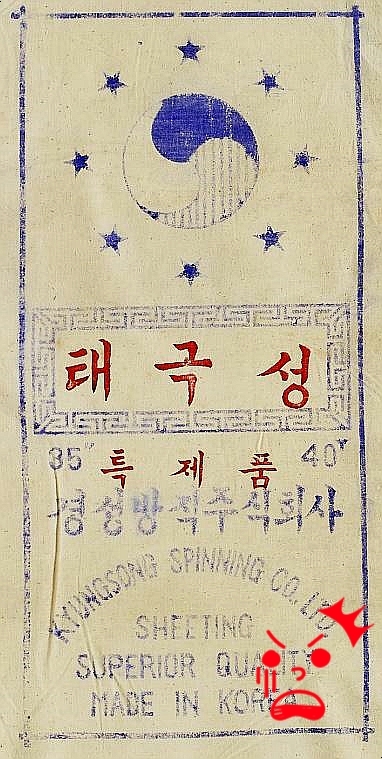 태극성
35" 40Y
특제품
경성방직주식회사
KYUNGSONG SPINNING CO. LTD.
SHEETING
SUPERIOR QUALITY
MADE IN KOREA